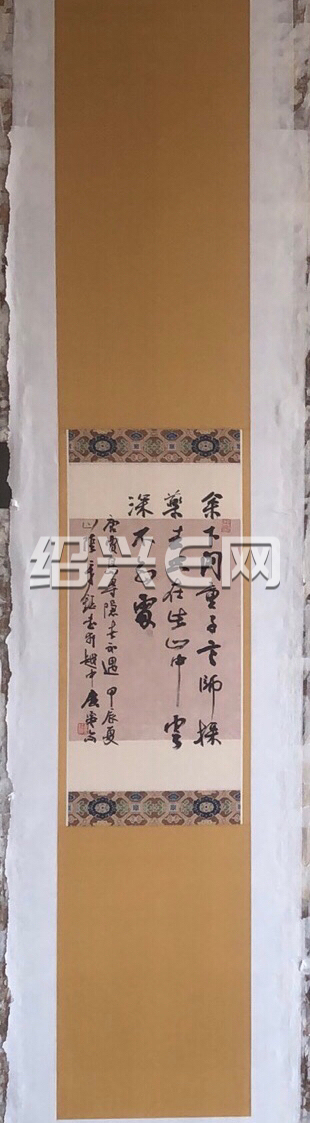 余下问童子言师採
药去只在此山中云
深不知处
唐贾岛寻隐者不遇 甲辰夏
绍兴E网